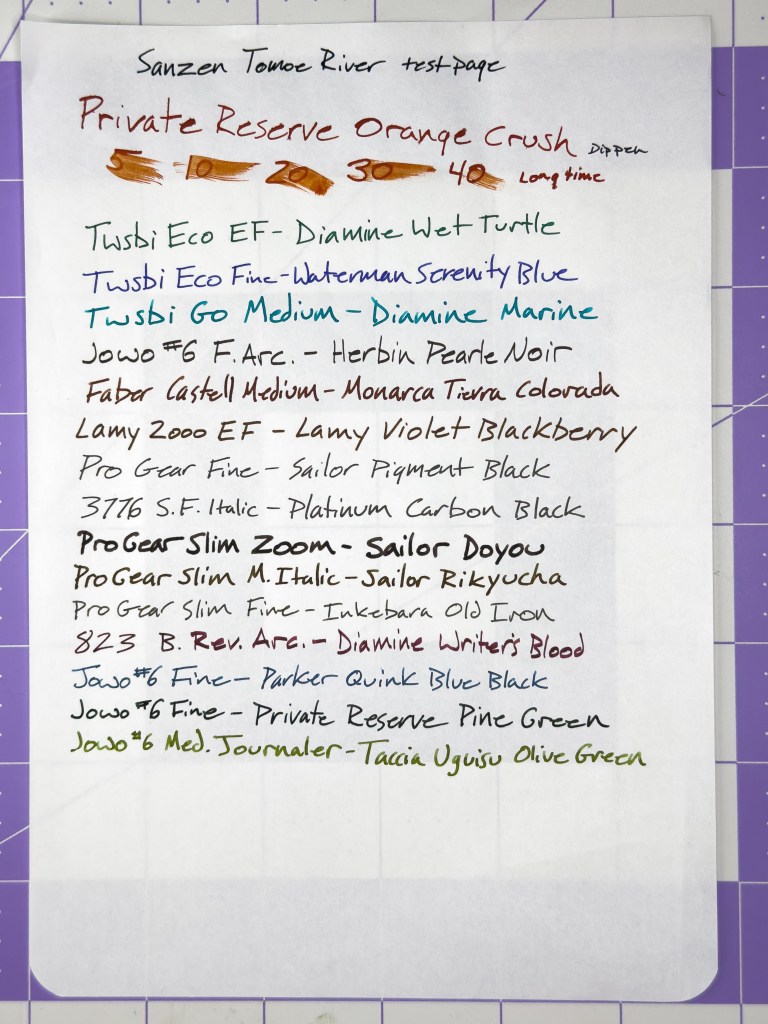 Sanzen Tomoe River test page
Private Reserve Orange Crush Dip pen
5 10 20 30 40 Long time
Twsbi Eco EF- Diamine Wet Turtle
Twsbi Eco Fine-Waterman Serenity Blue
Twsbi Go Medium - Diamine Marine
Jowo #6 F. Arc. - Herbin Pearle Noir
Faber Castell Medium - Monarca Tierra Colorada
Lamy 2000 EF - Lamy Violet Blackberry
Pro Gear Fine - Sailor Pigment Black
3776 S.F. Italic - Platinum Carbon Black
Pro Gear Slim Zoom - Sailor Doyou
Pro Gear Slim M. Italic - Sailor Rikyucha
Pro Gear Slim Fine - Inkebara Old Iron
823 B. Rev. Arc. - Diamine Writer's Blood
Jowo #6 Fine - Parker Quink Blue Black
Jowo #6 Fine - Private Reserve Pine Green
Jowo #6 Med. Journaler - Taccia Uguisu Olive Green